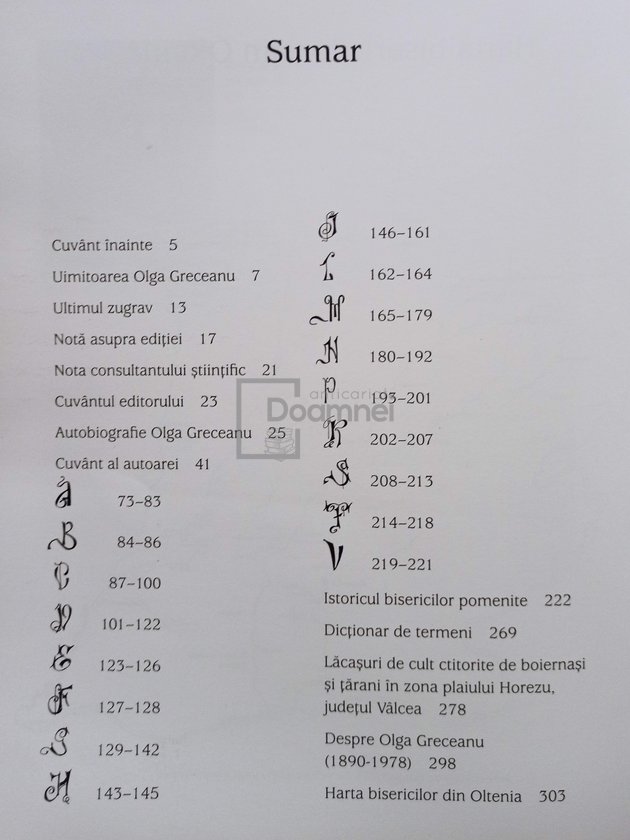 Sumar
Cuvânt înainte 5
Uimitoarea Olga Greceanu 7
Ultimul zugrav 13
Notă asupra ediției 17
Nota consultantului științific 21
Cuvântul editorului 23
Autobiografie Olga Greceanu 25
Cuvânt al autoarei 41
A 73–83
B 84–86
C 87–100
D 101–122
E 123–126
F 127–128
G 129–142
H 143–145
I 146–161
L 162–164
M 165–179
N 180–192
P 193–201
R 202–207
S 208–213
T 214–218
V 219–221
Istoricul bisericilor pomenite 222
Dicționar de termeni 269
Lăcașuri de cult ctitorite de boiernași
și țărani în zona plaiului Horezu,
județul Vâlcea 278
Despre Olga Greceanu
(1890-1978) 298
Harta bisericilor din Oltenia 303
anticariat
Doamnei